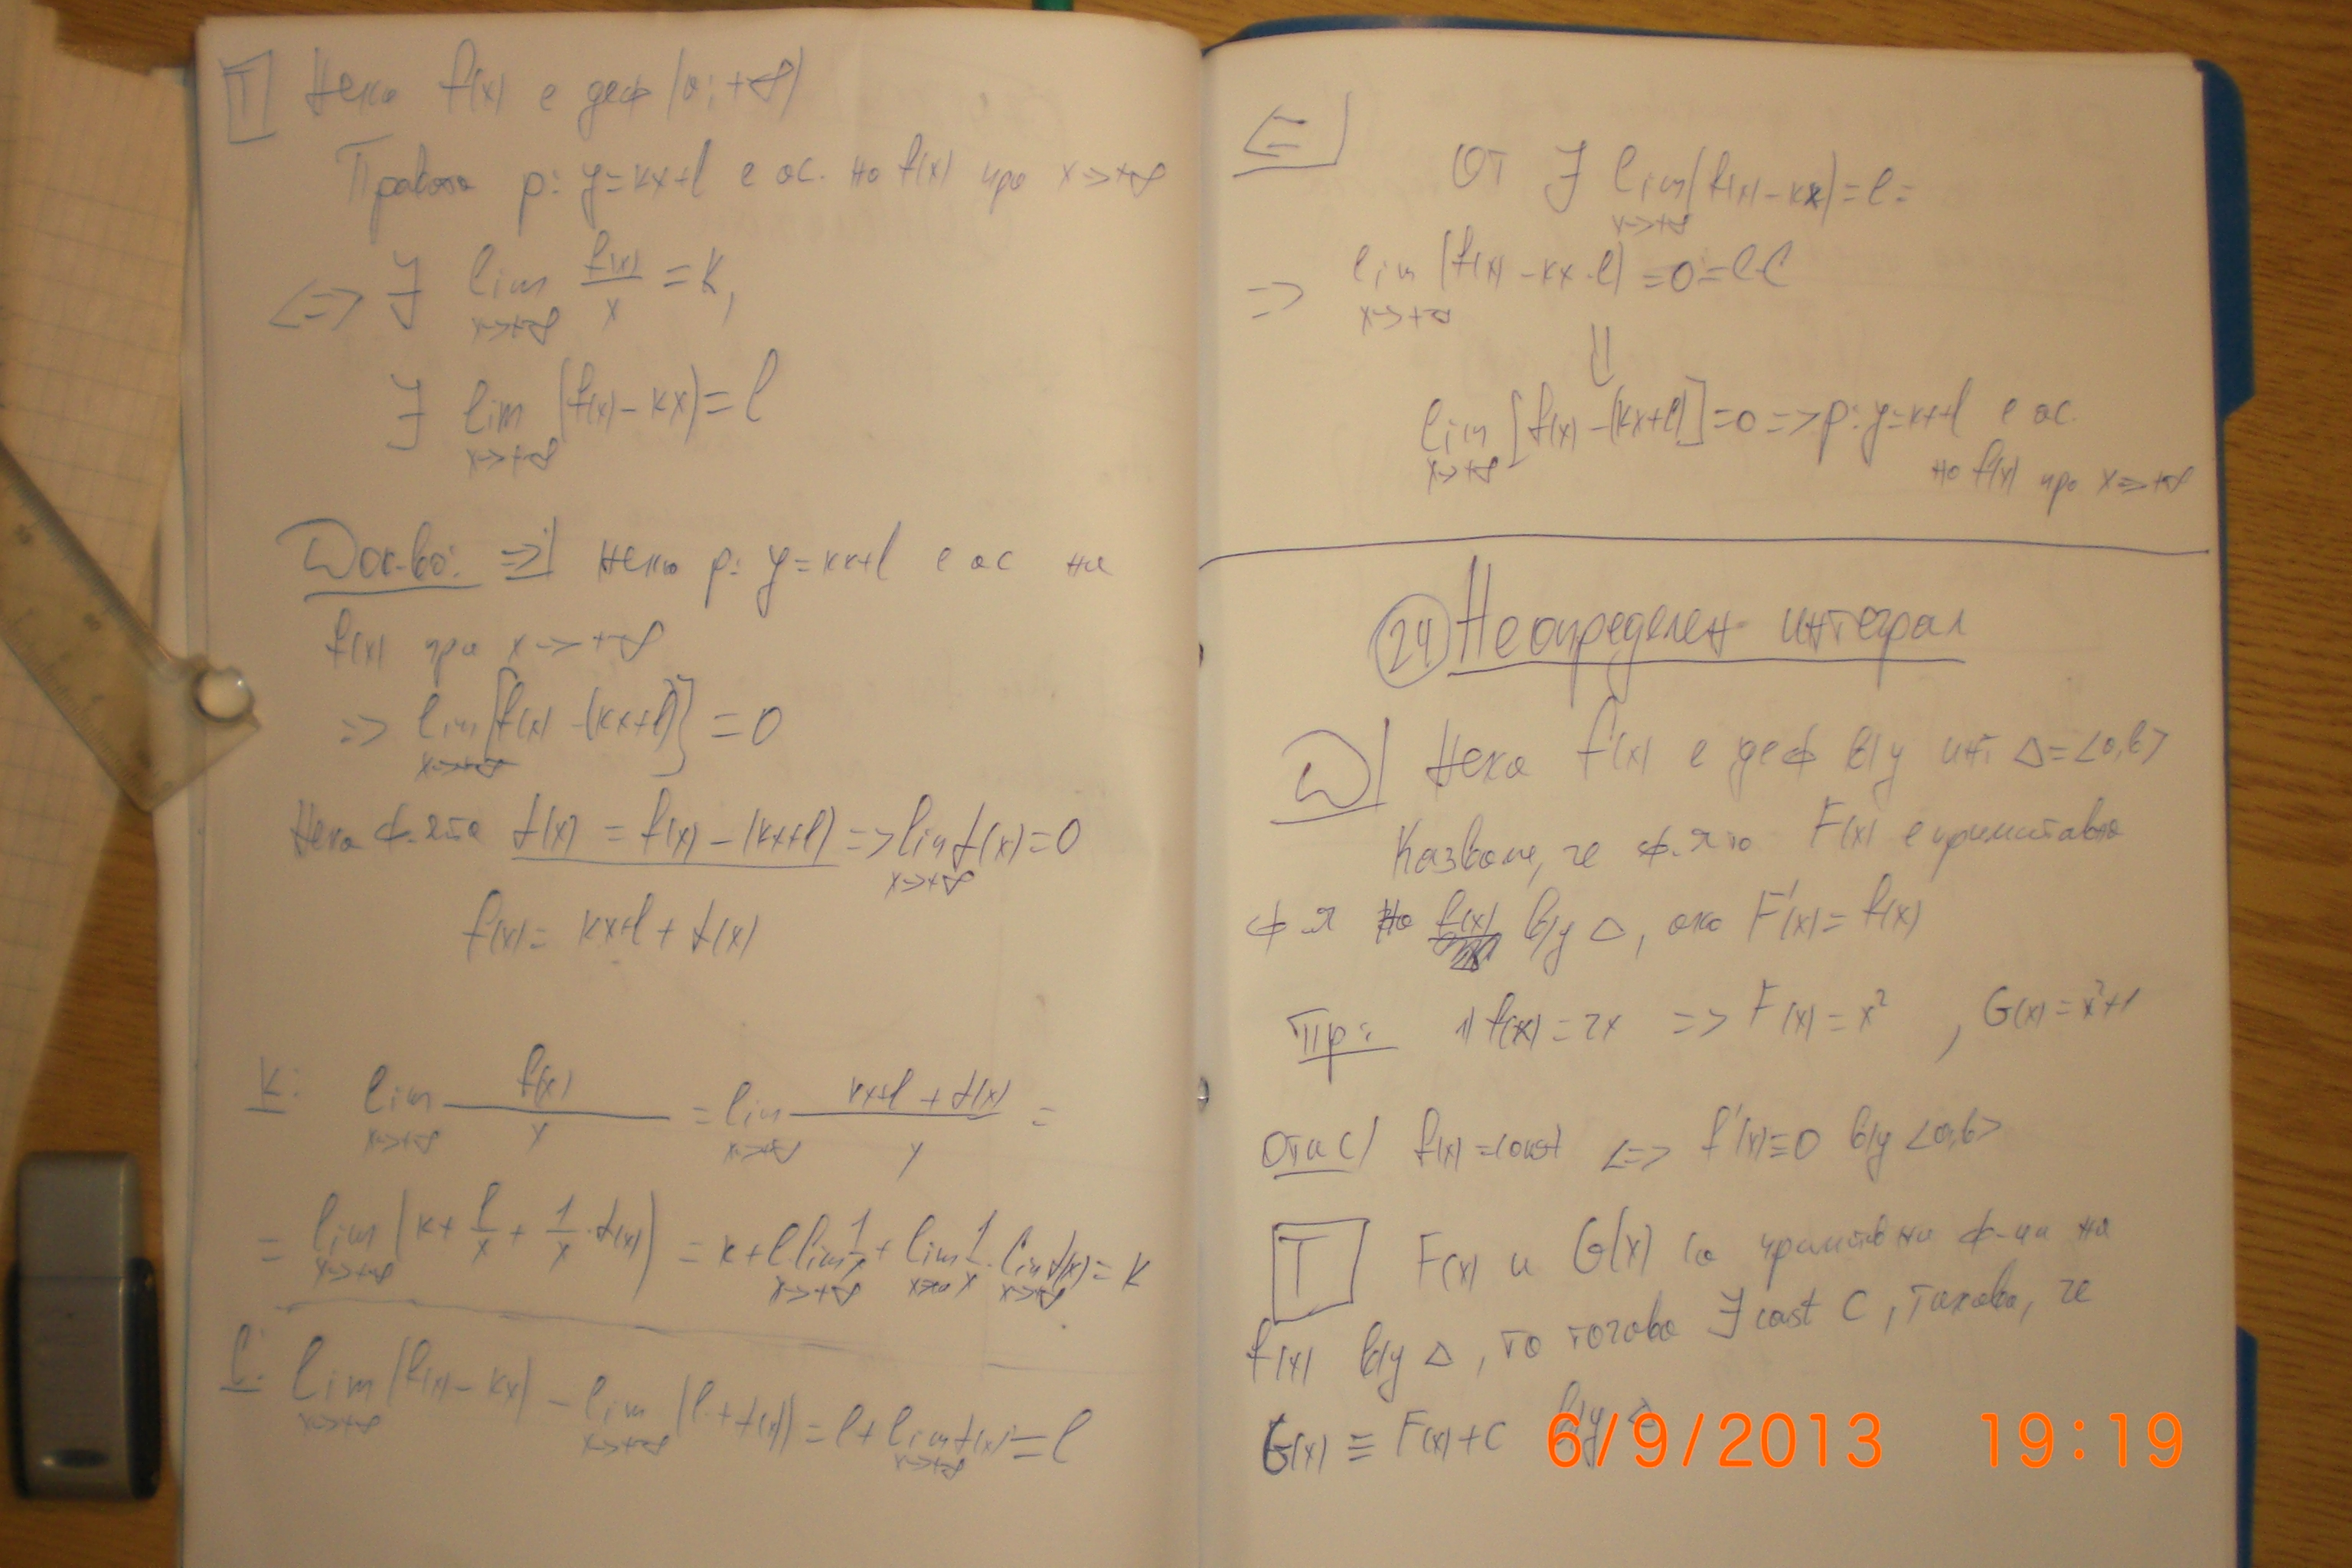 Т Нека f(x) е деф (a; +∞)
Правата p: y=kx+l е ас. на f(x) при x->+∞
<=> ∃ lim x->+∞ f(x)/x = k,
∃ lim x->+∞ (f(x)-kx)=l
Док-во: =>| Нека p: y=kx+l е ас на
f(x) при x->+∞
=> lim x->+∞ [f(x)-(kx+l)] = 0
Нека ф-ята t(x) = f(x)-(kx+l) => lim x->+∞ t(x)=0
f(x)= kx+l + t(x)
k: lim x->+∞ f(x)/x = lim x->+∞ (kx+l + t(x))/x =
= lim x->+∞ (k+ l/x + 1/x . t(x)) = k+l lim x->+∞ 1/x + lim x->+∞ 1/x . lim x->+∞ t(x) = k
l: lim x->+∞ (f(x)-kx) = lim x->+∞ (l+t(x)) = l+ lim x->+∞ t(x) = l
<=|
От ∃ lim x->+∞ (f(x)-kx)=l =
=> lim x->+∞ (f(x)-kx-l) =0=l-l
⇓
lim x->+∞ [f(x)-(kx+l)]=0 => p: y=kx+l е ас.
на f(x) при x->+∞
24 Неопределен интеграл
D| Нека f(x) е деф в/у инт Δ=<a,b>
Казваме, че ф-ята F(x) е примитивна
ф-я на f(x) в/у Δ, ако F'(x)= f(x)
Пр: 1) f(x)=2x => F(x)=x², G(x)=x²+1
От ИС) f(x)=const <=> f'(x)≡0 в/у <a,b>
Т F(x) и G(x) са примитивни ф-ии на
f(x) в/у Δ, то тогава ∃ const C, такава, че
G(x) ≡ F(x)+C в/у Δ
6/9/2013 19:19